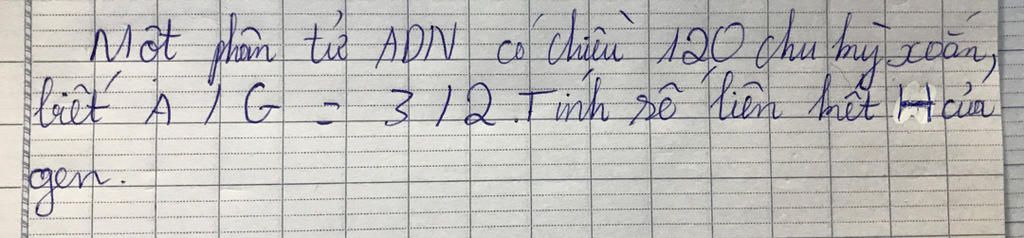 Một phân tử ADN có chiều 120 chu kỳ xoắn,
biết A / G = 3 / 2. Tính số liên kết H của
gen.